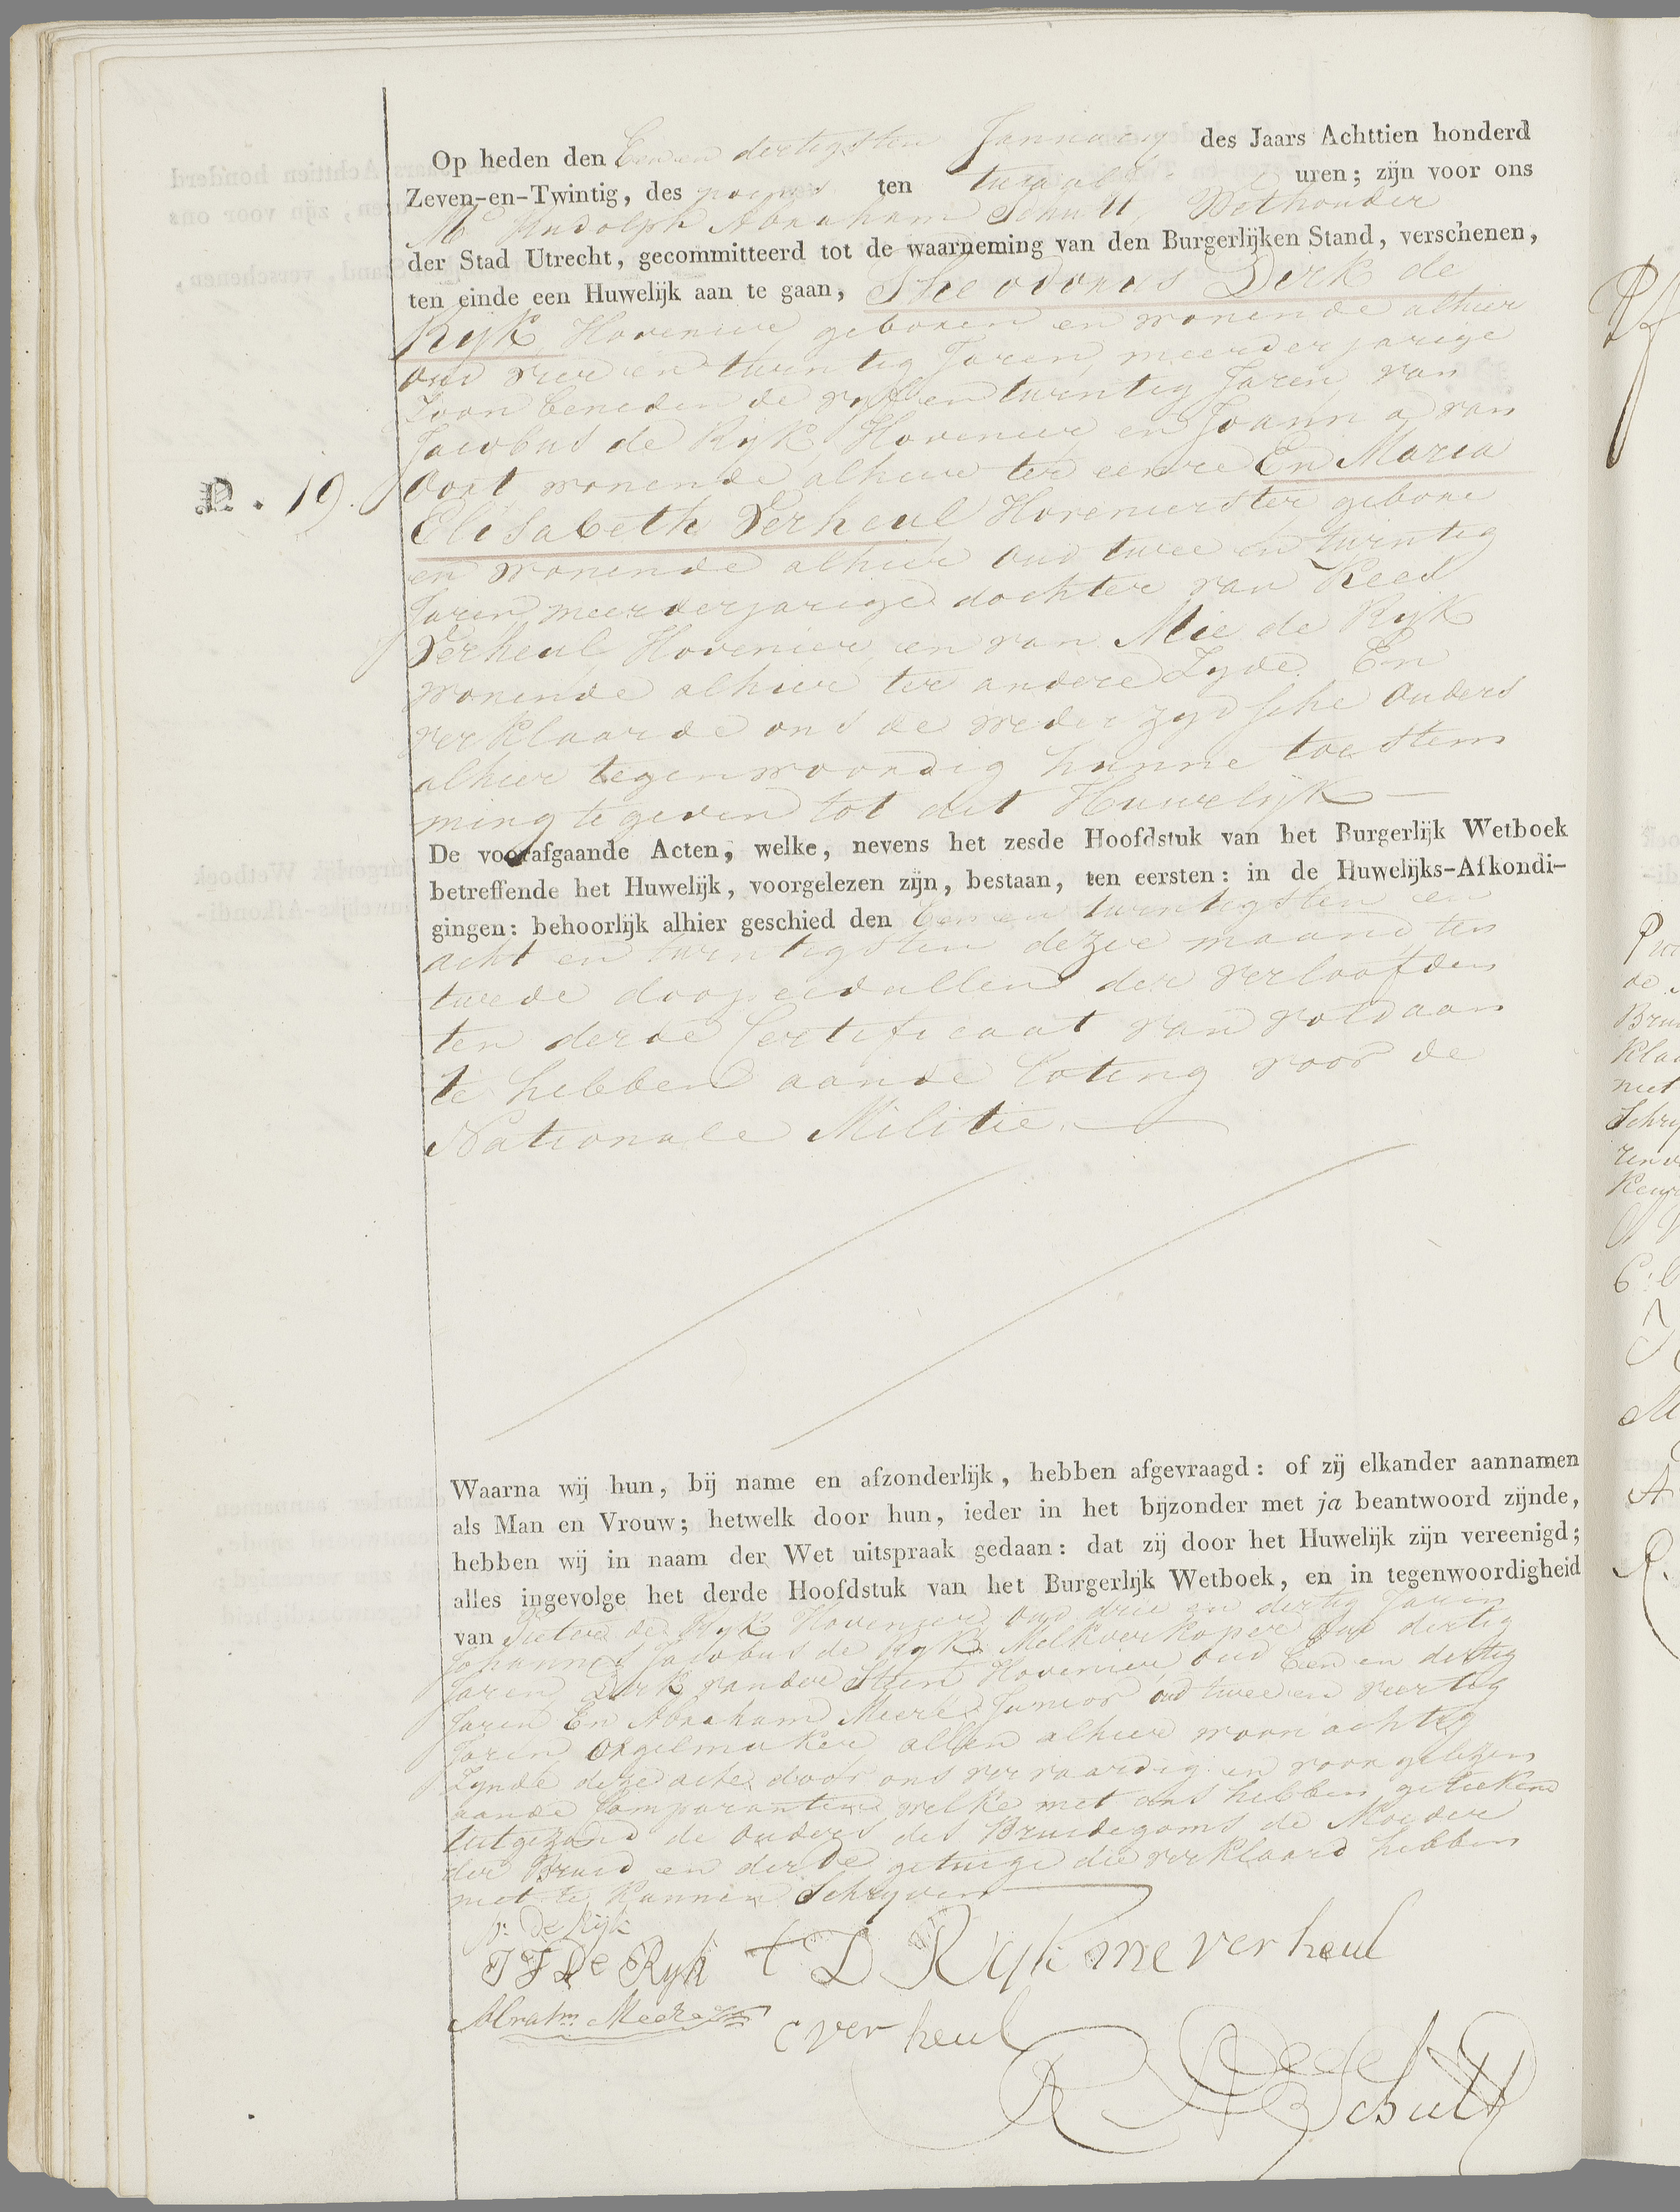 Op heden den Een en dertigsten January des Jaars Achttien honderd
Zeven-en-Twintig, des ten twaalf uren; zijn voor ons
Mr Rudolph Abraham Schutt, Wethouder
der Stad Utrecht, gecommitteerd tot de waarneming van den Burgerlijken Stand, verschenen,
ten einde een Huwelijk aan te gaan, Theodorus Dirk de
Ryk Hovenier geboren en wonende alhier
oud vier en twintig Jaren, meerderjarige
Zoon beneden de vyf en twintig Jaren van
Jacobus de Ryk Hovenier en Joanna van
N. 19.
Oort wonende alhier ter eenre En Maria
Elisabeth Verheul Hovenierster gebore
en wonende alhier oud twee en twintig
Jaren meerderjarige dochter van Kees
Verheul Hovenier en van Mie de Ryk
wonende alhier ter andere Zyde. En
verklaarde ons de wederzydsche Ouders
alhier tegenwoordig hunne toestem
ming te geven tot dit Huwelijk
De voorafgaande Acten, welke, nevens het zesde Hoofdstuk van het Burgerlijk Wetboek
betreffende het Huwelijk, voorgelezen zijn, bestaan, ten eersten: in de Huwelijks-Afkondi-
gingen: behoorlijk alhier geschied den Een en twintigsten en
acht en twintigsten dezer maand ten
twede doopcedullen der verloofden
ten derde Certificaat van voldaan
te hebben aande Loting voor de
Nationale Militie.
Waarna wij hun, bij name en afzonderlijk, hebben afgevraagd: of zij elkander aannamen
als Man en Vrouw; hetwelk door hun, ieder in het bijzonder met ja beantwoord zijnde,
hebben wij in naam der Wet uitspraak gedaan: dat zij door het Huwelijk zijn vereenigd;
alles ingevolge het derde Hoofdstuk van het Burgerlijk Wetboek, en in tegenwoordigheid
van Pieter de Ryk Hovenier oud drie en dertig Jaren
Johannes Jacobus de Ryk Melkverkoper oud dertig
Jaren, Dirk vander Steen Hovenier oud Een en dertig
Jaren En Abraham Meere Junior oud twee en veertig
Jaren Orgelmaker allen alhier woonachtig
Zynde deze acte door ons vervaardig en voorgelezen
aande Comparanten welke met ons hebben getekend
uitgezond de Ouders des Bruidegoms de Moeder
der Bruid en derde getuige die verklaard hebben
niet te kunnen Schryven
P: De Rijk
J J De Ryk t D Rijk me verheul
Abrahm Meere
c verheul
R A Schutt